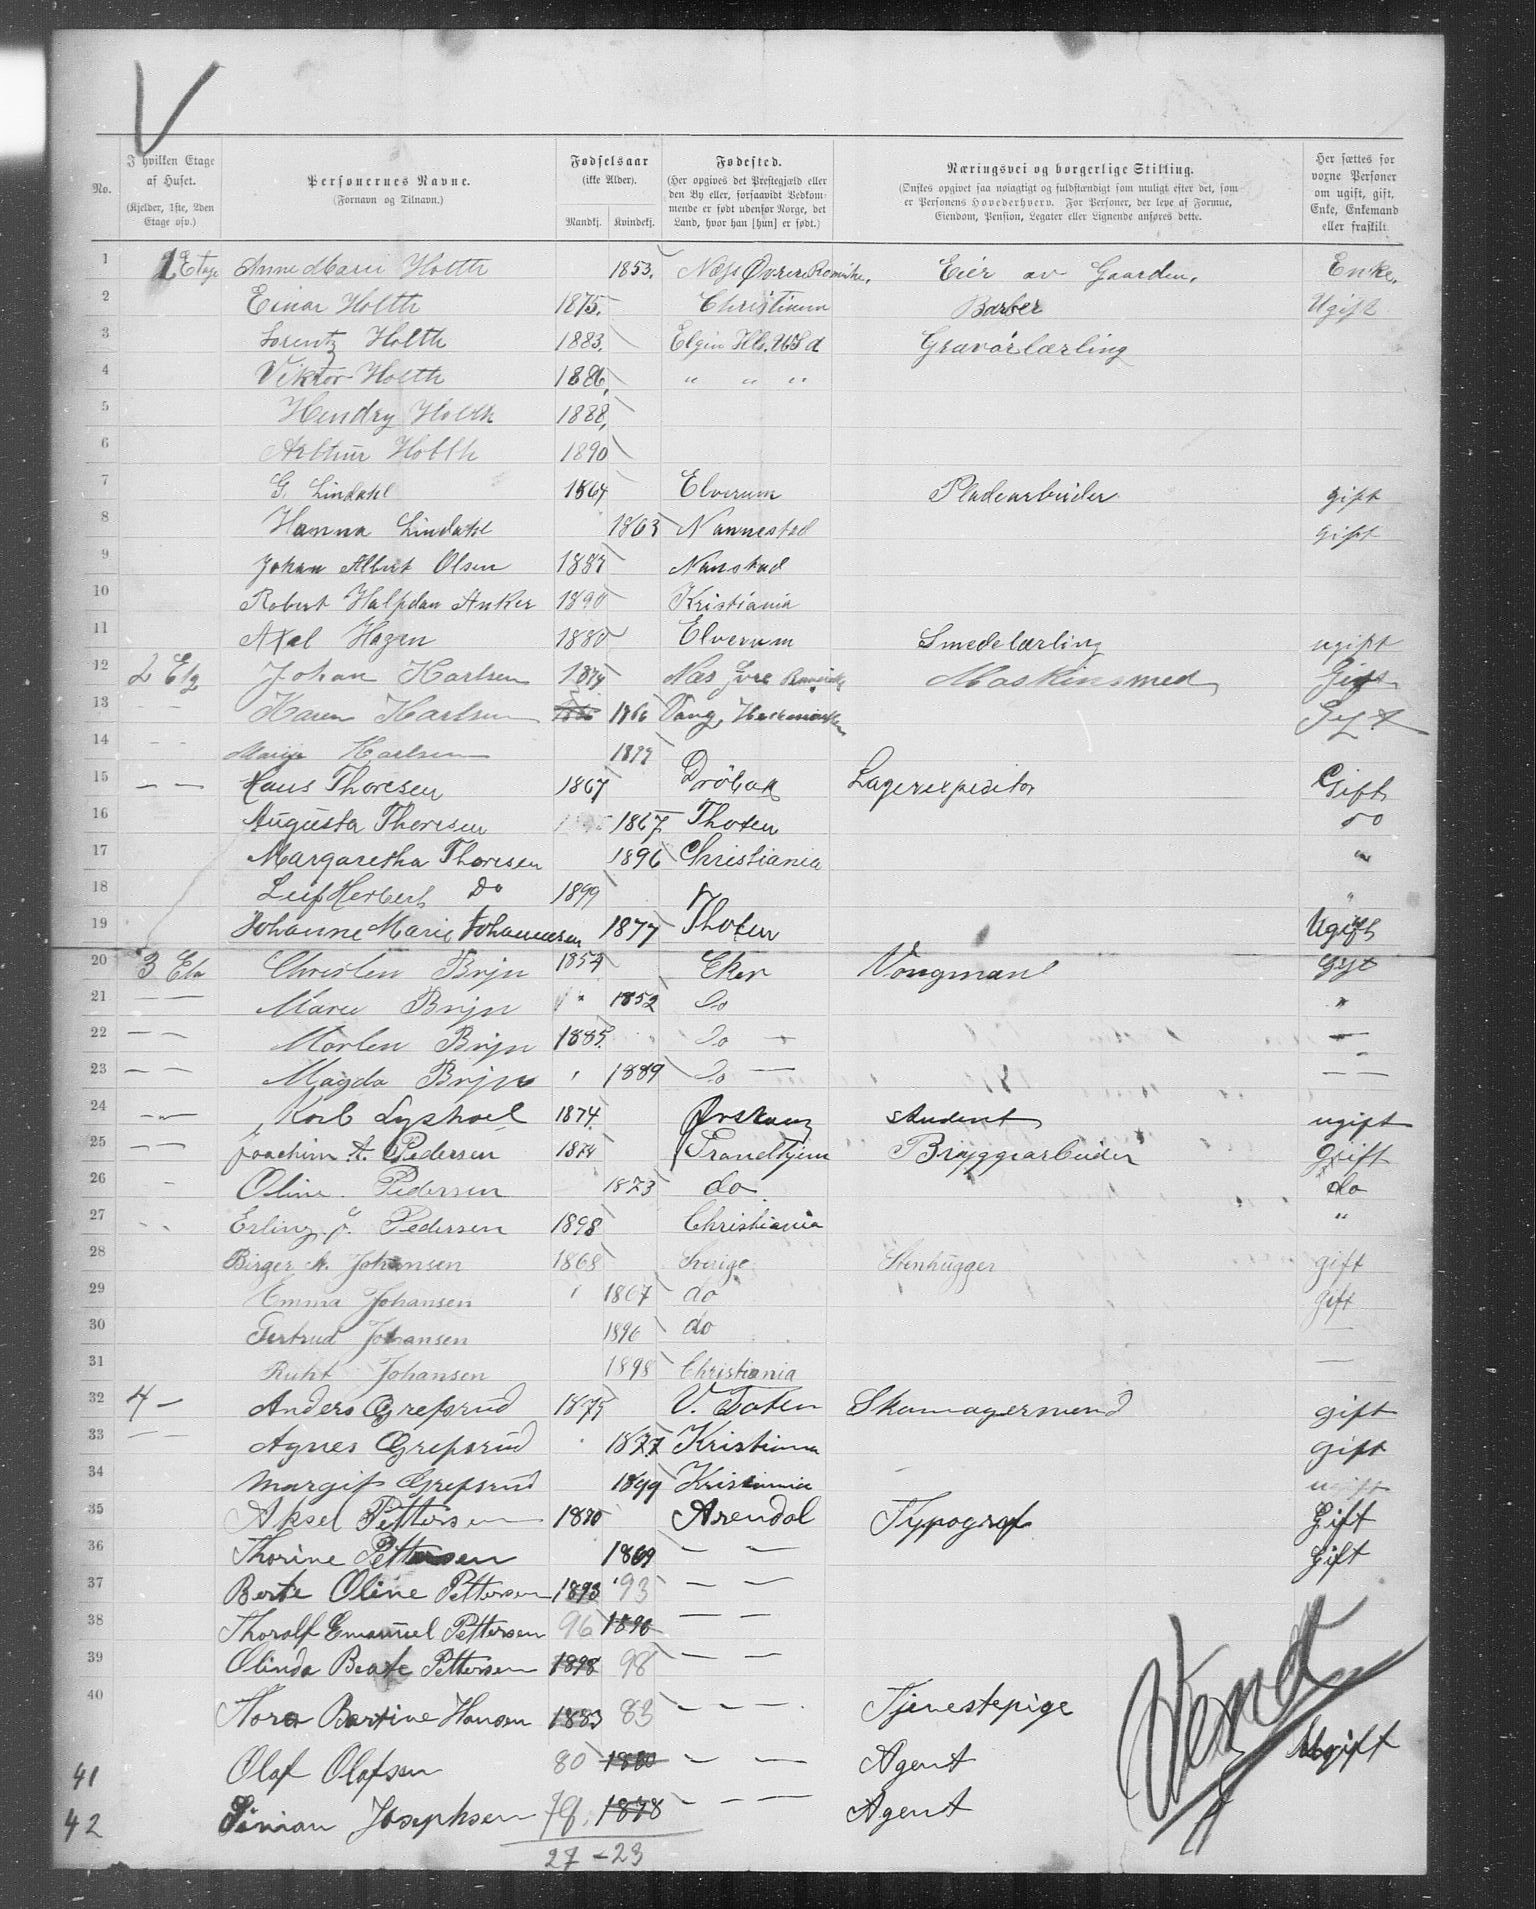 V
No. | I hvilken Etage af Huset. (Kjelder, 1ste, 2den Etage osv.) | Personernes Navne. (Fornavn og Tilnavn.) | Fødselsaar (ikke Alder). Mandkj. Kvindekj. | Fødested. (Her opgives det Prestegjæld eller den By eller, forsaavidt Vedkommende er født udenfor Norge, det Land, hvor han [hun] er født.) | Næringsvei og borgerlige Stilling. (Ønskes opgivet saa nøiagtigt og fuldstændigt som muligt efter det, som er Personens Hovederhverv. For Personer, der leve af Formue, Eiendom, Pension, Legater eller Lignende anføres dette. | Her sættes for voxne Personer om ugift, gift, Enke, Enkemand eller fraskilt.
1 1 Etage Anne Marie Holth 1853. Næs Øvre Romerike, Eier av Gaarden, Enke.
2 Einar Holth 1875. Christiania Barber Ugift
3 Lorentz Holth 1883. Elgin Ills. USA Gravørlærling
4 Viktor Holth 1886, " " "
5 Hendry Holth 1888,
6 Arthur Holth 1890
7 G. Lindahl 1864 Elverum Pladearbeider gift
8 Hanna Lindahl 1863 Nannestad gift
9 Johan Albert Olsen 1887 Nanstad
10 Robert Halfdan Anker 1890 Kristiania
11 Axel Hagen 1880 Elverum Smedelærling ugift
12 2 Etg Johan Karlsen 1874 Næs Øvre Romerike Maskinsmed Gift
13 - - Karen Karlsen 1866 Vang, Hedemarken Gift
14 - - Karlsen 1899
15 - - Hans Thoresen 1867 Drøbak Lagerexpeditor Gift
16 Augusta Thoresen 1867 Thoten do
17 Margaretha Thoresen 1896 Christiania "
18 Leif Herbert Do 1899 "
19 Johanne Marie Johannesen 1877 Thoten Ugift
20 3 Eta Christen Brijn 1854 Eker Vongmand Gift
21 - - Marie Brijn 1852 Do "
22 - - Morten Brijn 1885. Do - -
23 - - Magda Brijn 1889 Do - - -
24 - - Karl Lyshoel 1874. Ørskoug student ugift
25 - - Joachim A. Pedersen 1874 Trondhjem Bryggearbeider gift
26 - Oline Pedersen 1873 do do
27 - - Erling J. Pedersen 1898 Christiania "
28 Birger A. Johansen 1868 Sverige Stenhugger gift
29 Emma Johansen 1867 do gift
30 Gertrud Johansen 1896 do -
31 Ruht Johansen 1898 Christiania -
32 4 - Anders Grefsrud 1875 V. Toten Skomagersvend gift
33 - - Agnes Grefsrud 1877 Kristiania gift
34 Margit Grefsrud 1899 Kristiania ugift
35 Aksel Pettersen 1870 Arendal Typograf Gift
36 Thorine Pettersen 1869 - - Gift
37 Berte Oline Pettersen 1893 '93 - -
38 Thoralf Emanuel Pettersen 96 1896 - -
39 Olinda Beate Pettersen 1898 98 - -
40 Nora Bertine Hansen 1883 83 - - - Tjenestepige
41 Olaf Olafsen 80 1880 - - Agent Ugift
42 Simon Josephsen 78 1878 - - - Agent
Vend
27 - 23